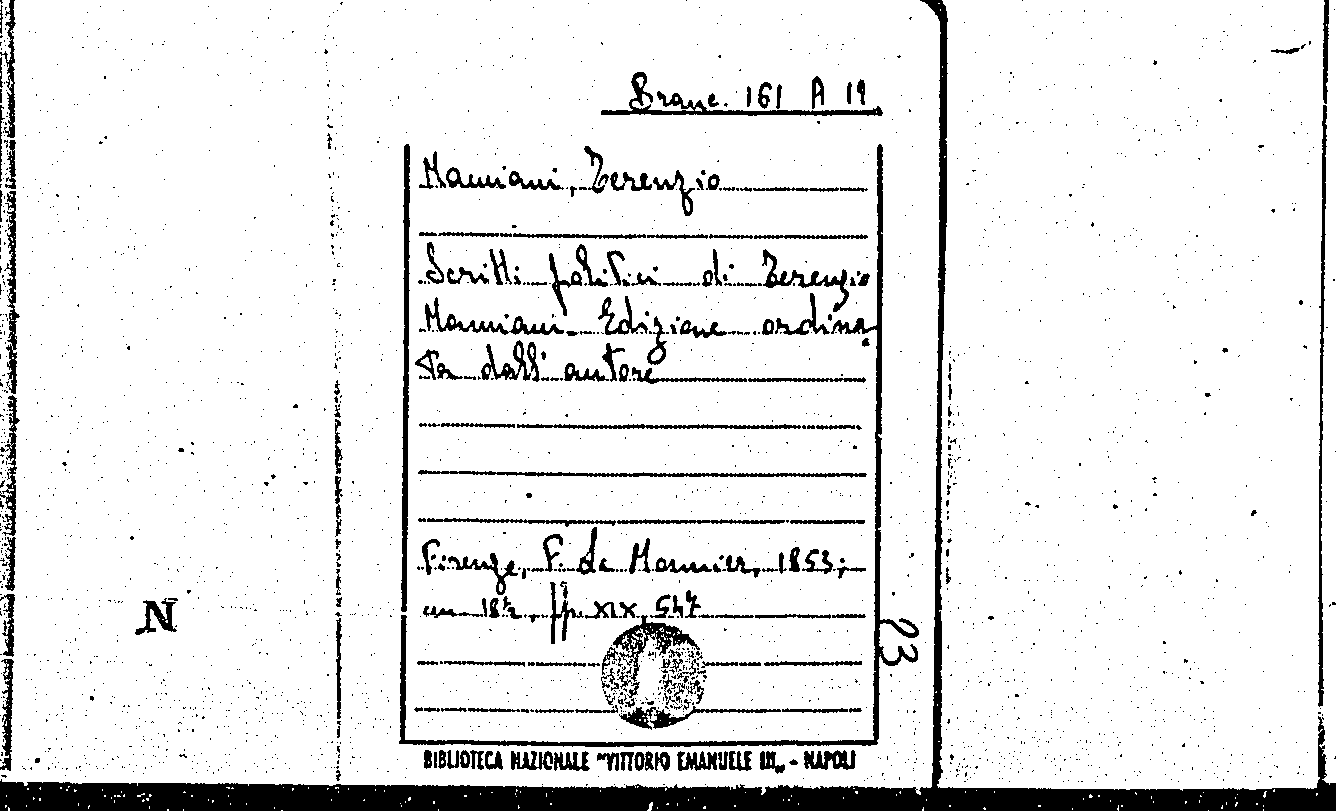 Branc. 161 A 19
Mamiani, Terenzio
Scritti politici di Terenzio
Mamiani. Edizione ordina
ta dall' autore
Firenze, F. Le Monnier, 1853;
in 18º, pp. XIX, 547
23
N
BIBLIOTECA NAZIONALE "VITTORIO EMANUELE III„ - NAPOLI